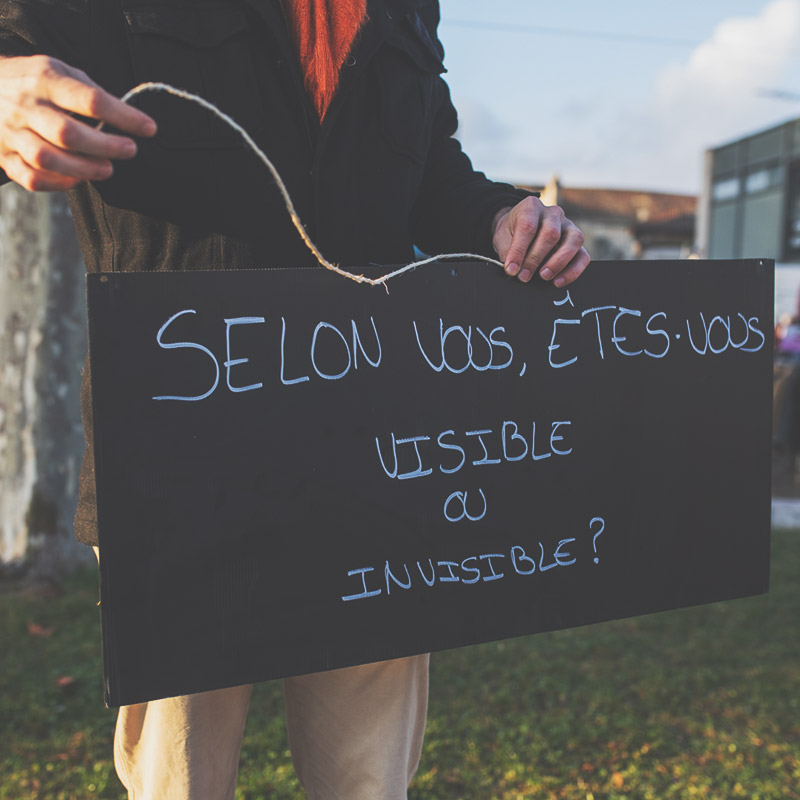 SELON VOUS, ÊTES-VOUS
VISIBLE
OU
INVISIBLE?